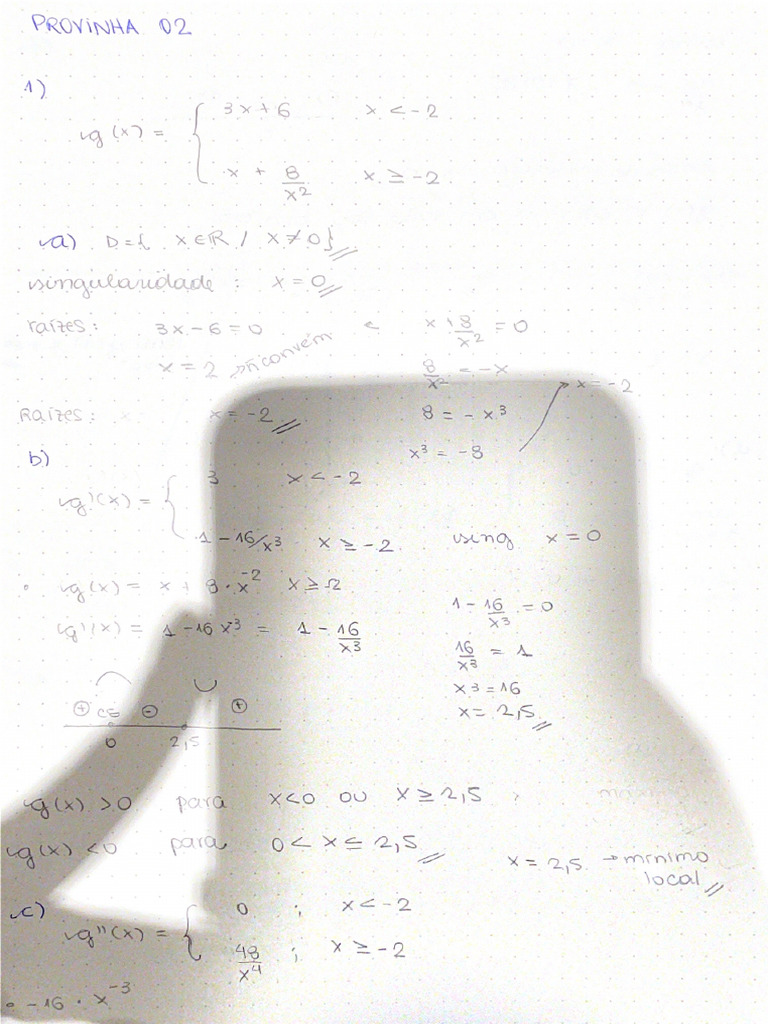 PROVINHA 02
1)
g(x) = { 3x+6 x < -2
x + 8/x² x ≥ -2
a) D={ x∈R / x≠0}
singularidade: x = 0
raízes: 3x-6=0 e x + 8/x² = 0
x = 2 → ñ convém 8/x² = -x
Raízes: x = -2 8 = -x³ → x = -2
x³ = -8
b)
g'(x) = { 3 x < -2
1 - 16/x³ x ≥ -2 sing x = 0
• g(x) = x + 8·x⁻² x ≥ 2
g'(x) = 1 -16 x⁻³ = 1 - 16/x³
1 - 16/x³ = 0
16/x³ = 1
x³ = 16
x = 2,5
⊕ ⊖ ⊕
0 2,5
g(x) > 0 para x<0 ou x ≥ 2,5
g(x) < 0 para 0 < x ≤ 2,5
x = 2,5 → mínimo
local
c)
g''(x) = { 0 ; x < -2
48/x⁴ ; x ≥ -2
• -16 · x⁻³